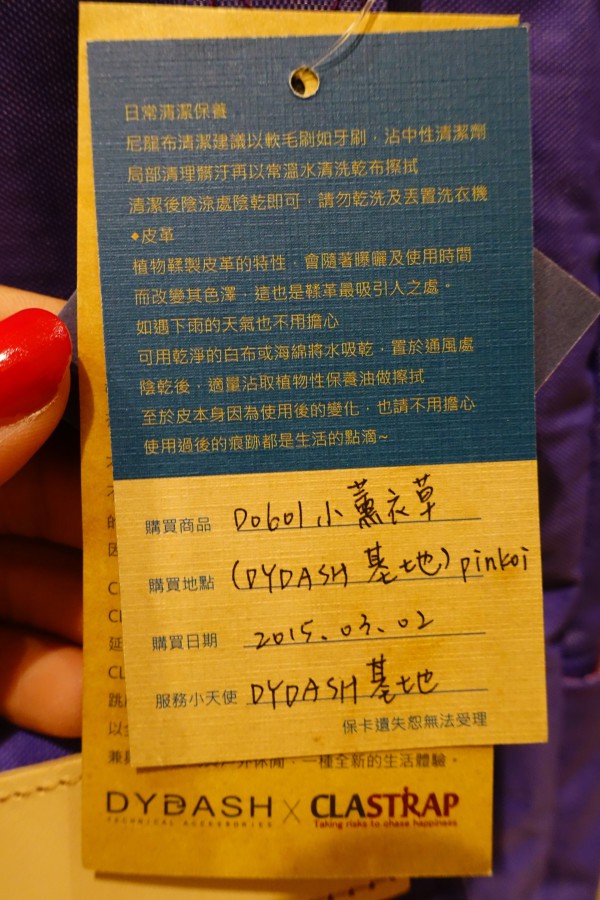 日常清潔保養
尼龍布清潔建議以軟毛刷如牙刷，沾中性清潔劑
局部清理髒汙再以常溫水清洗乾布擦拭
清潔後陰涼處陰乾即可，請勿乾洗及丟置洗衣機
◆皮革
植物鞣製皮革的特性，會隨著曝曬及使用時間
而改變其色澤，這也是鞣革最吸引人之處。
如遇下雨的天氣也不用擔心
可用乾淨的白布或海綿將水吸乾，置於通風處
陰乾後，適量沾取植物性保養油做擦拭
至於皮本身因為使用後的變化，也請不用擔心
使用過後的痕跡都是生活的點滴~
購買商品 D0601 小薰衣草
購買地點 (DYDASH 基地) pinkoi
購買日期 2015.03.02
服務小天使 DYDASH 基地
保卡遺失恕無法受理
的
因
C
CL
延
CL
跳
以
兼 戶外休閒，一種全新的生活體驗。
DYDASH X CLASTRAP
TECHNICAL ACCESSORIES Taking risks to chase happiness